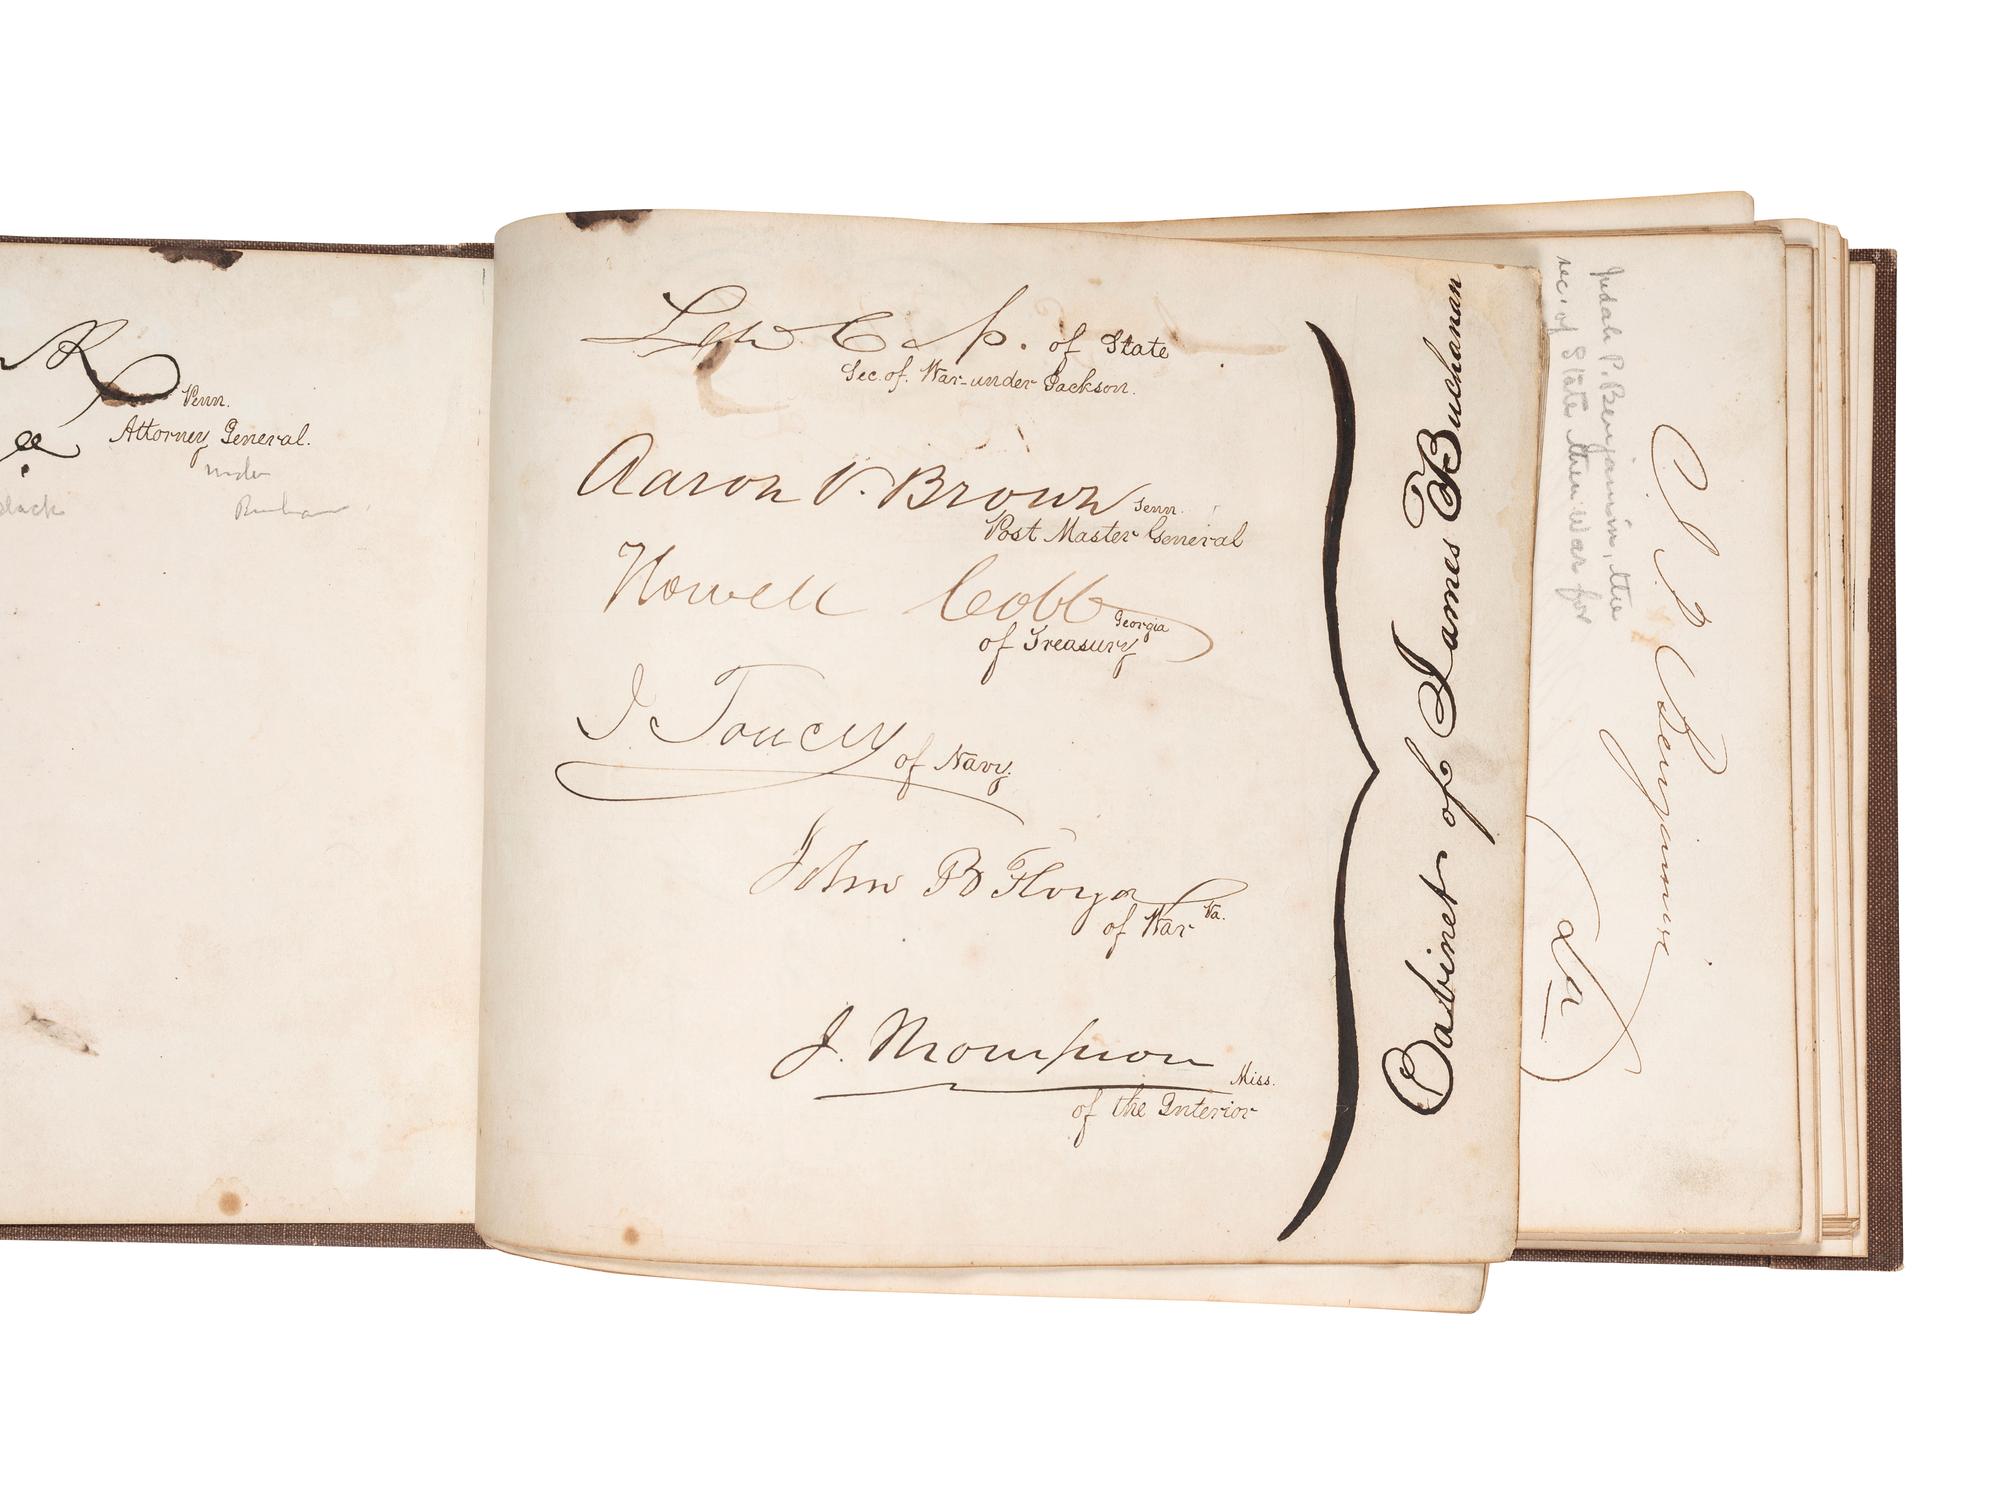 Penn.
Attorney General.
under
Lew Cass. of State
Sec. of. War-under Jackson.
Aaron V. Brown Tenn.
Post Master General
Howell Cobb
Georgia
of Treasury
I. Toucey of Navy.
John B Floyd
of War Va.
J. Thompson Miss.
of the Interior
Cabinet of James Buchanan
Judah P. Benjamin, the
sec. of State then War for
J. P. Benjamin
La